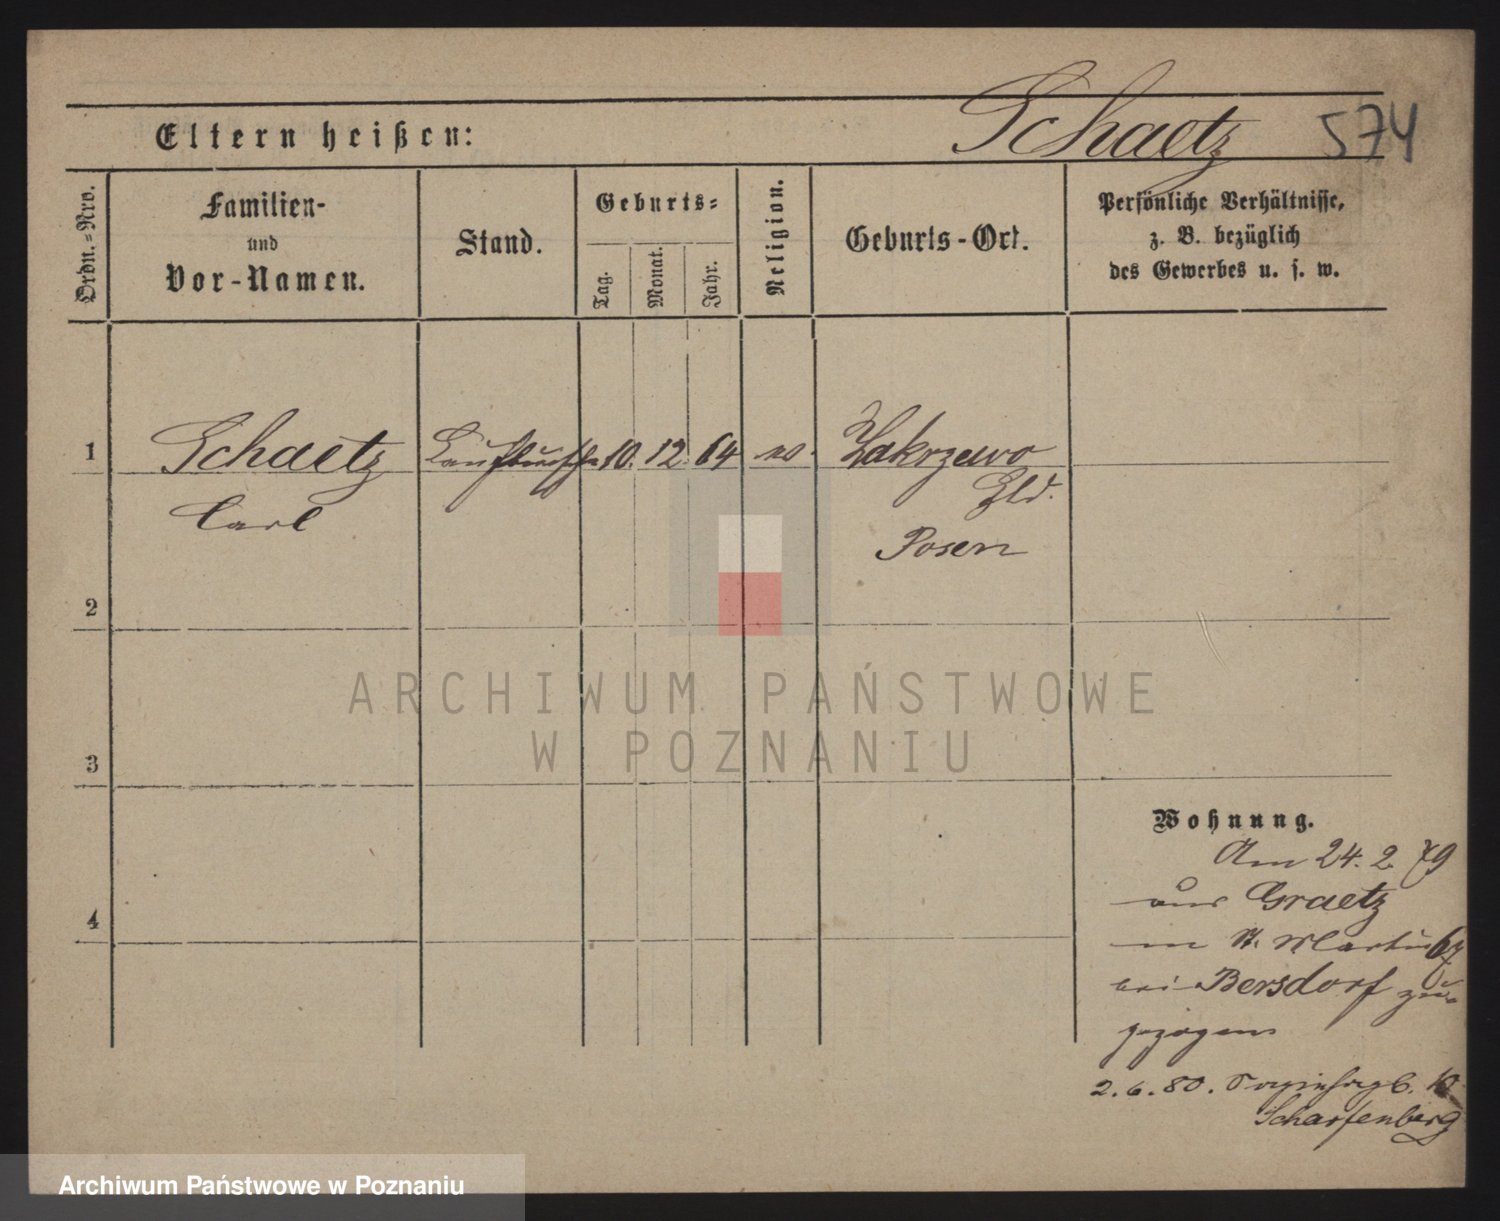 Schaetz 574
Eltern heißen:
Ordn.=Nro.
Familien-
und
Vor-Namen.
Stand.
Geburts=
Tag.
Monat.
Jahr.
Religion.
Geburts-Ort.
Persönliche Verhältnisse,
z. B. bezüglich
des Gewerbes u. s. w.
1 Schaetz Laufbursche 10. 12. 64 Zakrzewo
Carl
Posen
2
3
4
Wohnung.
Am 24. 2. 79
aus Graetz
in St. Martin 67
bei Bersdorf zu-
gezogen
2. 6. 80.
Scharfenberg
ARCHIWUM PAŃSTWOWE
W POZNANIU
Archiwum Państwowe w Poznaniu